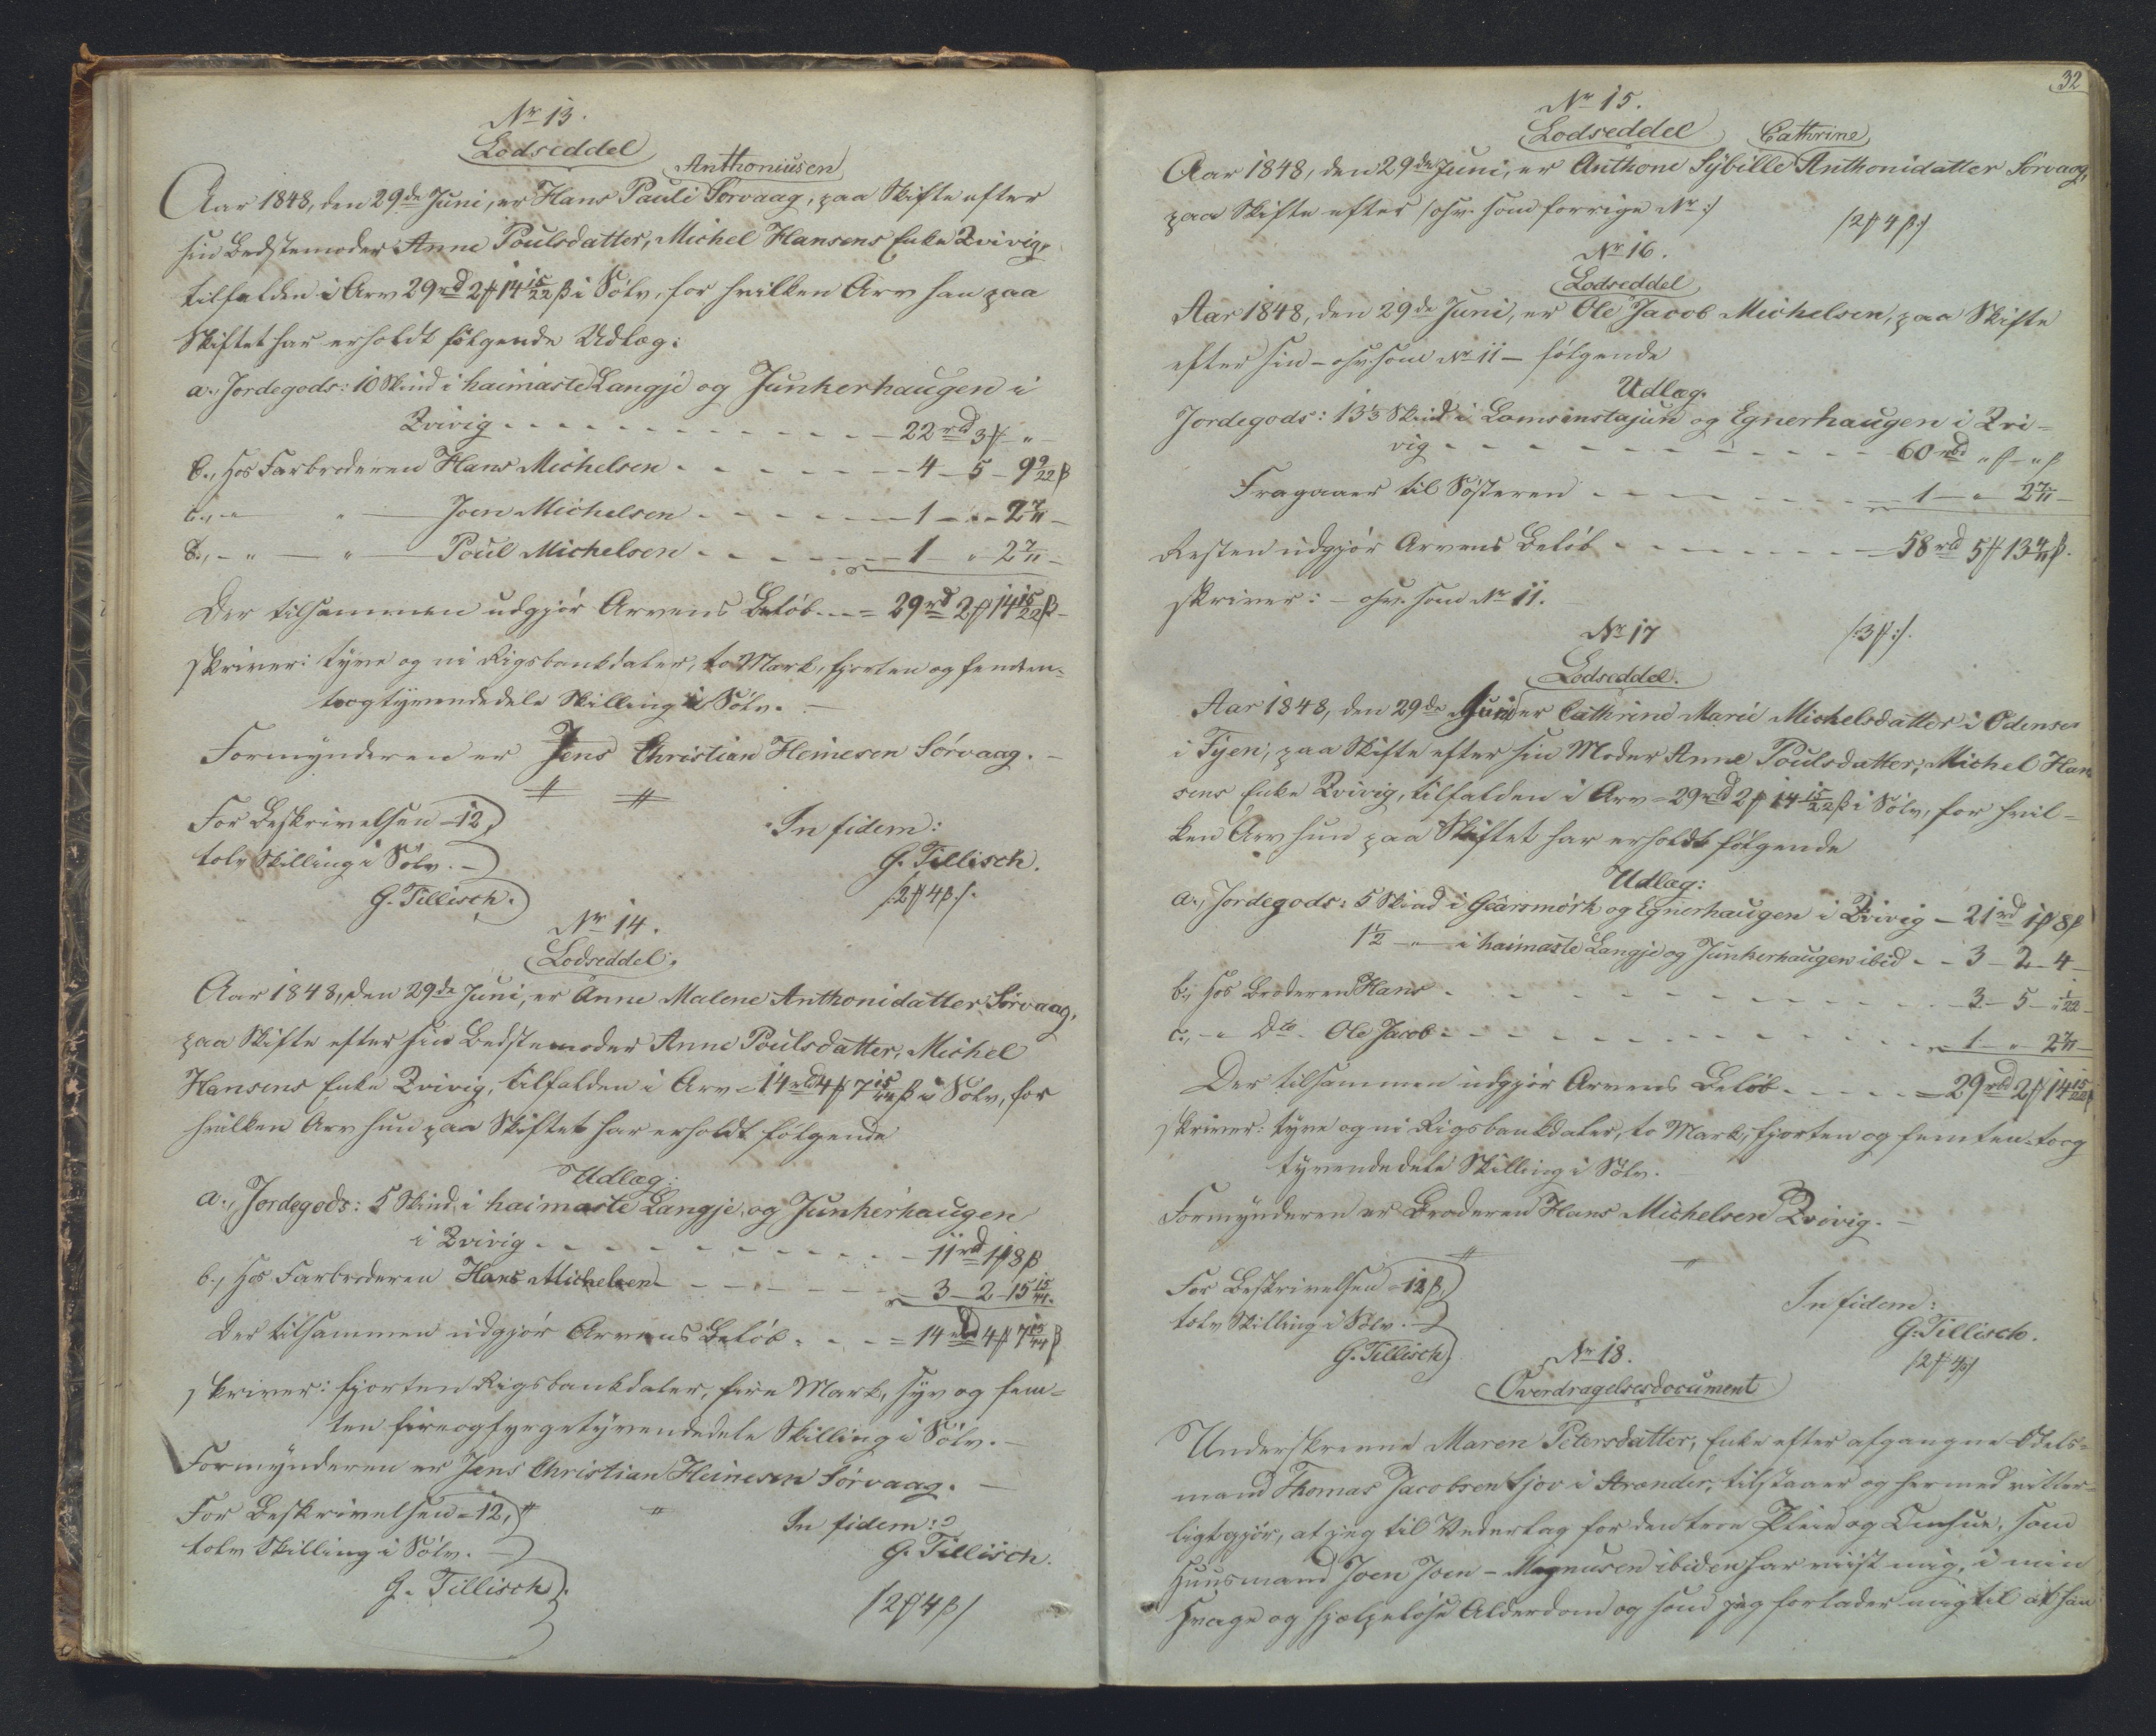 Nr 13.
Lodseddel
Anthoniusen
Aar 1848, den 29de Juni, er Hans Pauli Sørvaag, paa Skifte efter
sin Bedstemoder Anne Poulsdatter, Michel Hansens Enke Qvivig,
tilfalden i Arv 29rd 2ℳ 14 15/22 β i Sølv, for hvilken Arv han paa
Skiftet har erholdt følgende Udlæg:
a., Jordegods: 10 Skind i haimaste Langje og Junkerhaugen i
Qvivig - - - 22rd 3ℳ "
b., Hos Farbroderen Hans Michelsen - - - 4 - 5 - 9 9/22 β
c., - " - " - Joen Michelsen - - - 1 - " - 2 7/11 -
d., - " - " - Poul Michelsen - - - 1 " 2 7/11 -
Der tilsammen udgjør Arvens Beløb - - = 29rd 2ℳ 14 15/22 β -
skriver: tyve og ni Rigsbankdaler, to Mark, fjorten og femten-
toogtyvendedele Skilling i Sølv. -
Formynderen er Jens Christian Heinesen Sørvaag. -
For Beskrivelsen - 12,
tolv Skilling i Sølv. -
G. Tillisch.
In fidem:
G. Tillisch.
/:2ℳ 4β:/.
Nr 14.
Lodseddel.
Aar 1848, den 29de Juni, er Anne Malene Anthonidatter Sørvaag,
paa Skifte efter sin Bedstemoder Anne Poulsdatter, Michel
Hansens Enke Qvivig, tilfalden i Arv = 14rd 4ℳ 7 15/44 β i Sølv, for
hvilken Arv hun paa Skiftet har erholdt følgende
Udlæg:
a., Jordegods: 5 Skind i haimaste Langje og Junkerhaugen
i Qvivig - - - 11rd 1ℳ 8β
b., Hos Farbroderen Hans Michelsen - - - 3 - 2 - 15 15/44.
Der tilsammen udgjør Arvens Beløb - - - = 14rd 4ℳ 7 15/44 β
skriver: fjorten Rigsbankdaler, fire Mark, syv og fem-
ten fireogfyrgetyvendedele Skilling i Sølv. -
Formynderen er Jens Christian Heinesen Sørvaag. -
For Beskrivelsen = 12,
tolv Skilling i Sølv. -
G. Tillisch.
In fidem:
G. Tillisch.
/2ℳ 4β/
32
Nr 15.
Lodseddel
Cathrine
Aar 1848, den 29de Juni, er Anthone Sybille Anthonidatter Sørvaag,
paa Skifte efter /osv. som forrige Nr:/
/2ℳ 4β:/
Nr 16.
Lodseddel
Aar 1848, den 29de Juni, er Ole Jacob Michelsen, paa Skifte
efter sin - osv. som Nr 11 - følgende
Udlæg.
Jordegods: 13 1/3 Skind i Lomsinstajun og Egnerhaugen i Qvi-
vig - - - 60rbd "ℳ - "β
Fragaaer til Søsteren - - - 1 - " 2 7/11 -
Resten udgjør Arvens Beløb - - - 58rd 5ℳ 13 4/11 β.
skriver: - osv. som Nr 11.
Nr 17
/:3ℳ:/.
Lodseddel.
Aar 1848, den 29de Juni er Cathrine Marie Michelsdatter i Odense
i Fyen, paa Skifte efter sin Moder Anne Poulsdatter, Michel Han
sens Enke Qvivig, tilfalden i Arv = 29rd 2ℳ 14 15/22 β i Sølv, for hvil-
ken Arv hun paa Skiftet har erholdt følgende
Udlæg:
a., Jordegods: 5 Skind i Gearsmørk og Egnerhaugen i Qvivig - 21rd 1ℳ 8β
1 1/2 - " - i haimaste Langje og Junkerhaugen ibid - - 3 - 2 - 4 -
b., Hos Broderen Hans - - - 3 - 5 - " 1/22 -
c., - " Dto - Ole Jacob - - - 1 - " 2 7/11 -
Der tilsammen udgjør Arvens Beløb - - - = 29rbd 2ℳ 14 15/22 β
skriver: tyve og ni Rigsbankdaler, to Mark, fjorten og femten-toog
tyvendedele Skilling i Sølv.
Formynderen er Broderen Hans Michelsen Qvivig. -
For Beskrivelsen - 12β,
tolv Skilling i Sølv. -
G. Tillisch
In fidem:
G. Tillisch.
/2ℳ 4β/
Nr 18.
Overdragelsesdocument
Underskrevne Maren Petersdatter, Enke efter afgangne Odels-
mand Thomas Jacobsen i Strænder, tilstaaer og hermed vitter-
ligtgjør, at jeg til Vederlag for den troe Pleie og Omhue, som
Huusmand Joen Joen-Magnusen ibiden har viist mig, i min
svage og hjælpeløse Alderdom og som jeg forlader mig til at han